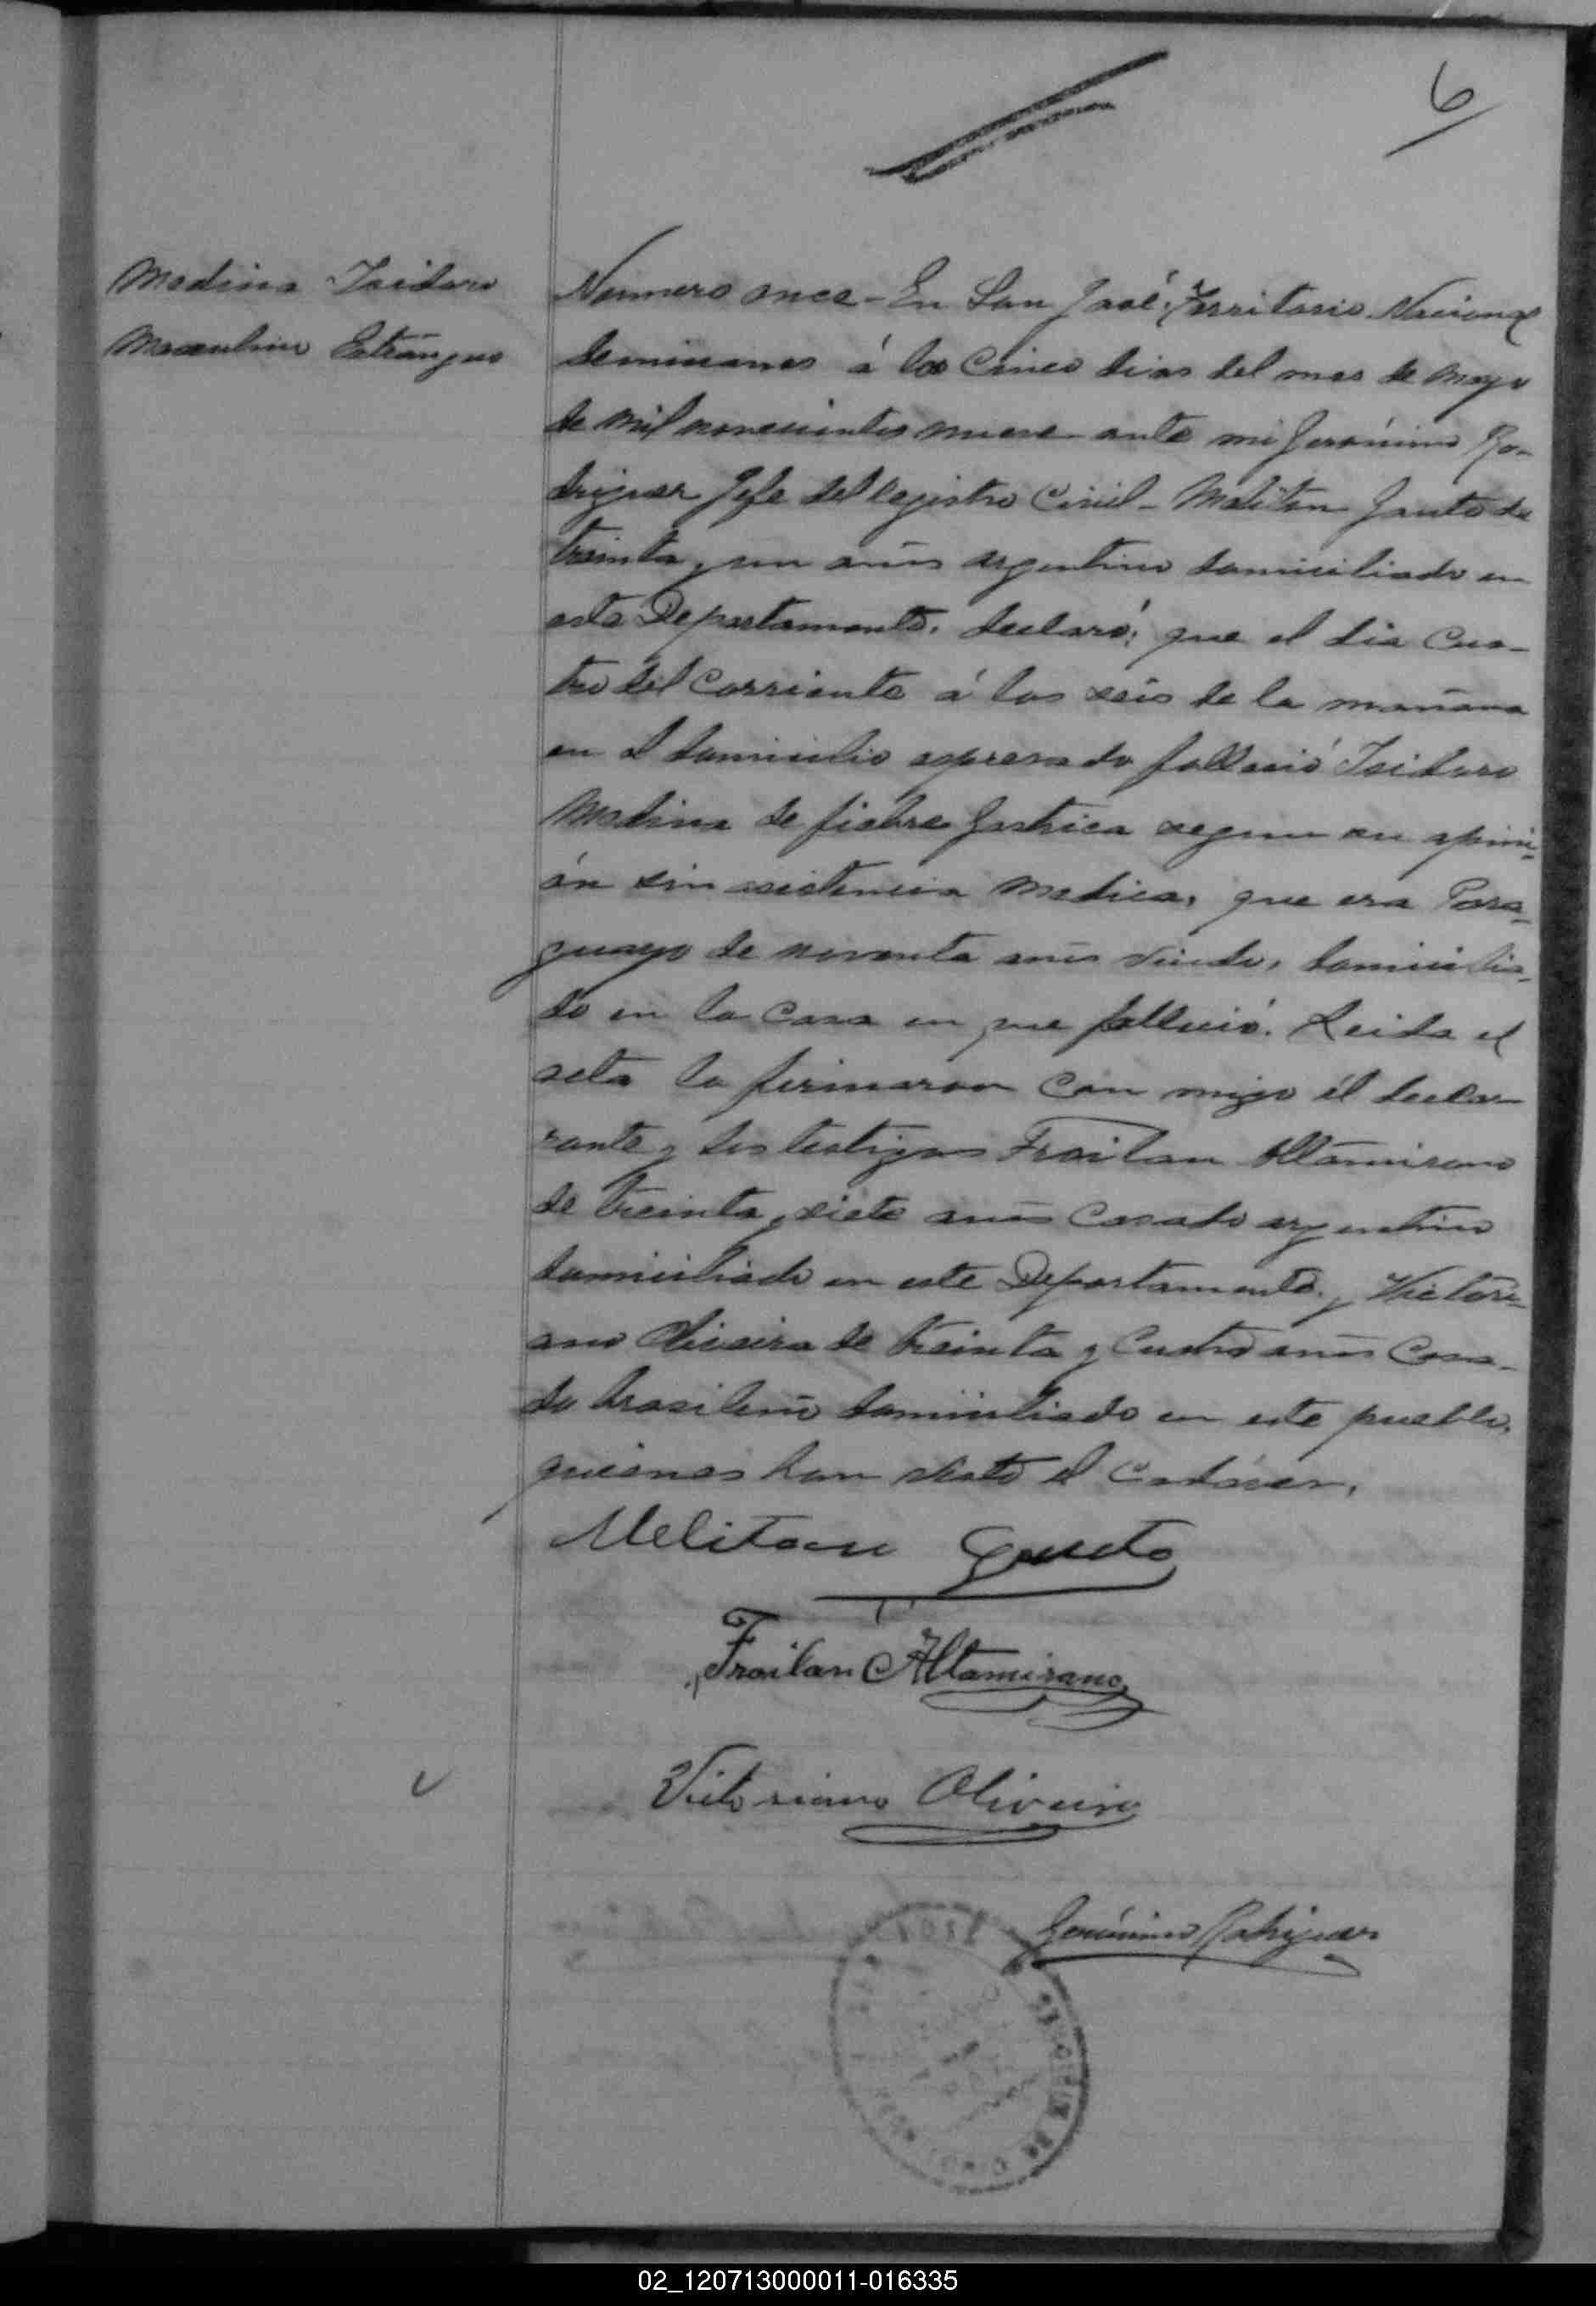 6
Medina Isidoro
Masculino Extrangero
Número once - En San José, Territorio Nacional
de misiones á los Cinco dias del mes de mayo
de mil novecientos nueve ante mi Gerónimo Ro-
driguez Jefe del Registro Civil - Meliton Gauto de
treinta y un años argentino domiciliado en
este Departamento. declaró: que el dia Cua-
tro del Corriente á las seis de la mañana
en el domicilio espresado falleció Isidoro
Medina de fiebre Gastrica segun su opini-
ón sin asistencia medica, que era Para-
guayo de noventa años viudo, domicilia-
do en la Casa en que falleció. Leida el
acta la firmaron Con migo él decla-
rante y los testigos Froilan Altamirano
de treinta y siete años Casado argentino
domiciliado en este Departamento. y Victori-
ano Oliveira de treinta y Cuatro años Casa-
do brasilero domiciliado en este pueblo.
quienes han visto el Cadáver.
Meliton Gauto
Froilan Altamirano
Victoriano Oliveira
Gerónimo Rodriguez
02_120713000011-016335